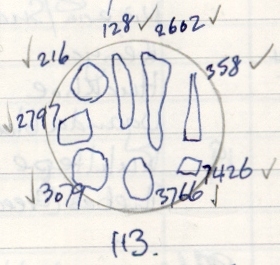 128 ✓ 2602 ✓
✓ 216
358 ✓
✓ 2797
7426 ✓
✓ 3079
3766 ✓
113.